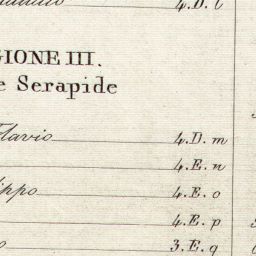 4.D.l
GIONE III.
e Serapide
Flavio 4.D.m
4.E.n
ippo 4.E.o
4.E.p
o 3.E.q